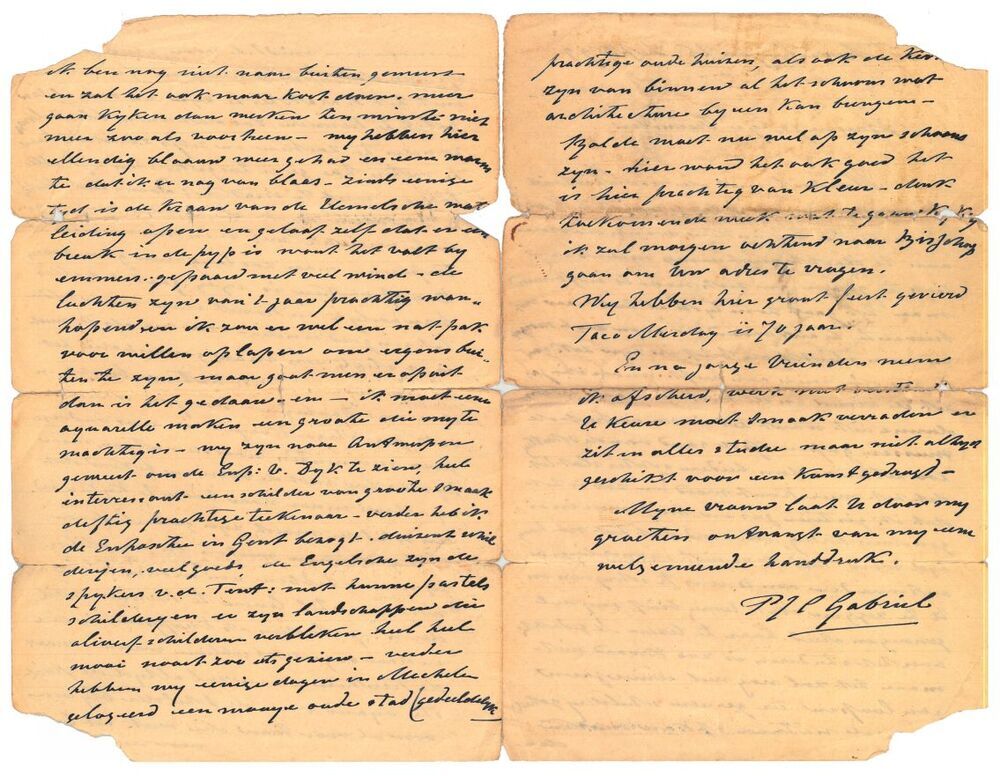 ik ben nog niet naar buiten geweest
en zal het ook maar kort doen. meer
gaan kijken dan werken ten minste niet
meer zoo als voorheen – wy hebben hier
ellendig blaauw weer gehad en eene warm
te dat ik er nog van blaas – zinds eenige
tyd is de kraan van de Hemelsche wat
leiding open en geloof zelf dat er een
breuk in de pyp is want het valt by
emmers. gepaard met veel wind – de
luchten zyn van 't jaar prachtig wan-
hopend en ik zou er wel een nat pak
voor willen oplopen om ergens bui-
ten te zyn, maar gaat men er op uit
dan is het gedaan – en – ik moet eene
aquarelle maken een groote die myte
machtig is – wy zyn naar Antwerpen
geweest om de Exp: v. Dyk te zien, heel
interressant een schilder van groote smaak
deftig prachtige teekenaar – verder heb ik
de Expositie in Gent bezogt. duizent schil
deryen, veel goeds de Engelsche zyn de
spykers v.d. Tent: met hunne pastels
schilderyen er zyn landschappen die
olieverf schilderen verbleken heel heel
mooi nooit zoo iets gezien – verder
hebben wy eenige dagen in Mechelen
gelogeerd een mooye oude stad (gedeeldelyk
prachtige oude huizen, als ook de Ker
zyn van binnen al het schoons wat
architecture by een kan brengen –
moet nu wel op zyn schoons
zyn – hier word het ook goed het
is hier prachtig van kleur – denk
toekomende week wat te gaan kyken
ik zal morgen ochtend naar Bisschop
gaan om Uw adres te vragen.
Wy hebben hier groot feest gevierd
Taco Mesdag is 70 jaar.
En na jonge vrinden neem
ik afscheid, werk met
U keuze moet smaak verraden er
zit in alles studie maar niet altyd
geschikt voor een Kunstgedragt –
Myne vrouw laat U door my
groeten ontvangt van my eene
welgemeende handdruk.
PJC Gabriel